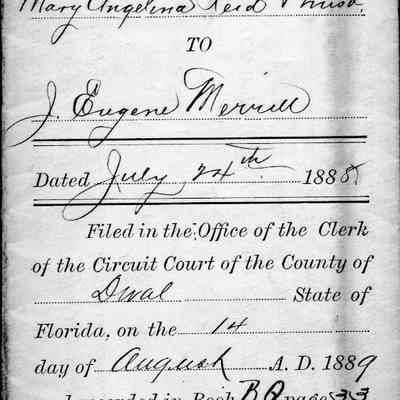 Mary Angelina Reid
TO
J. Eugene Merrill
Dated July 24th 1888
Filed in the Office of the Clerk
of the Circuit Court of the County of
Duval State of
Florida, on the 14
day of August A. D. 1889
recorded in Book BQ page 33